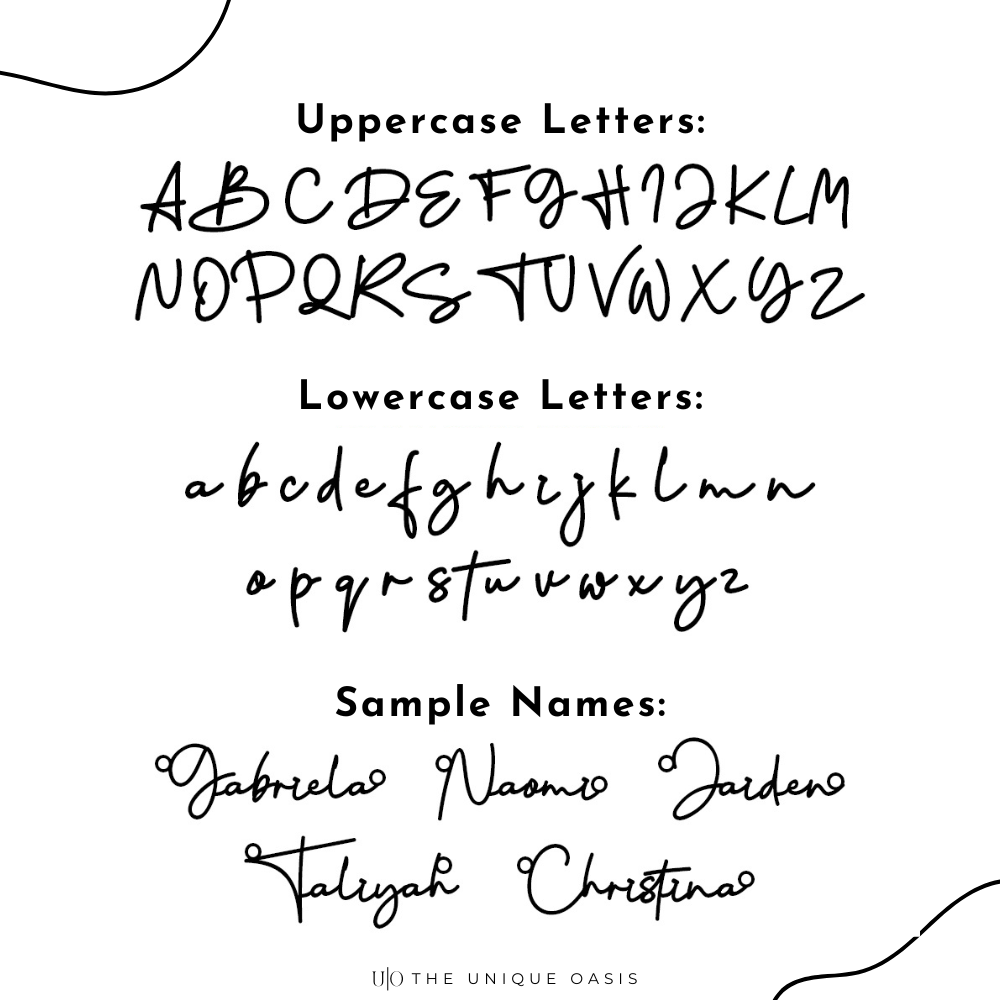 Uppercase Letters:
A B C D E F G H I J K L M
N O P Q R S T U V W X Y Z
Lowercase Letters:
a b c d e f g h i j k l m n
o p q r s t u v w x y z
Sample Names:
Gabriela Naomi Jaiden
Taliyah Christina
U|O THE UNIQUE OASIS